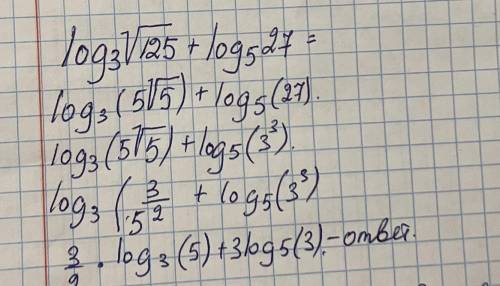 log₃√125 + log₅27 =
log₃(5√5) + log₅(27).
log₃(5√5) + log₅(3³).
log₃(5^(3/2) + log₅(3³)
3/2 · log₃(5) + 3log₅(3). - ответ.